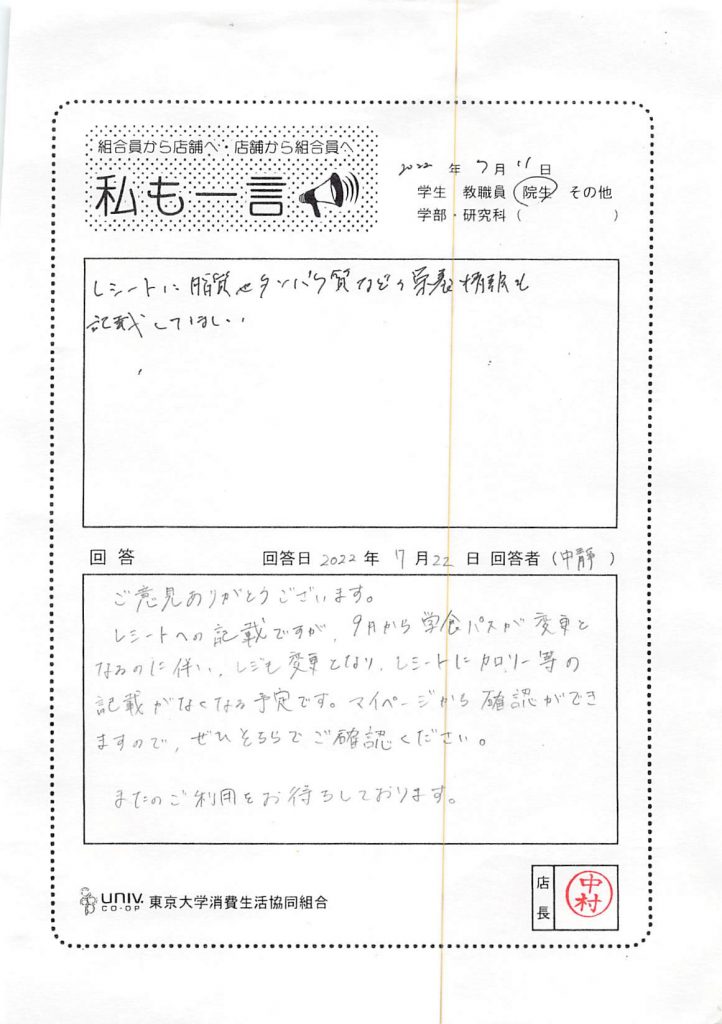 組合員から店舗へ・店舗から組合員へ
私も一言
2022 年 7 月 11 日
学生 教職員 院生 その他
学部・研究科 ( )
レシートに脂質やタンパク質などの栄養情報も
記載してほしい
回答 回答日 2022 年 7 月 22 日 回答者 (中静)
ご意見ありがとうございます。
レシートへの記載ですが、9月から学食パスが変更と
なるのに伴い、レジも変更となり、レシートにカロリー等の
記載がなくなる予定です。マイページから確認ができ
ますので、ぜひそちらでご確認ください。
またのご利用をお待ちしております。
UNIV. CO-OP 東京大学消費生活協同組合
店長 中村